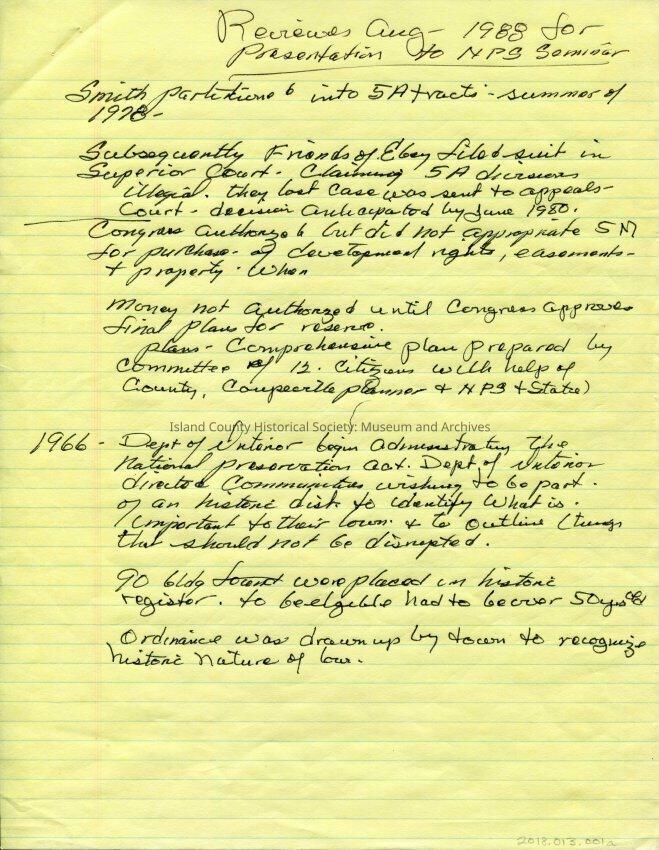 Reviewed Aug - 1988 for
Presentation to NPS Seminar
Smith partitioned into 5A tracts - summer of
1978 -
Subsequently Friends of Ebey filed suit in
Superior Court - Claiming 5A divisions
illegal. they lost case was sent to appeals -
Court - decision anticipated by June 1980.
Congress authorized but did not appropriate 5 M
for purchase - of development rights, easements -
+ property. When
Money not authorized until Congress approves
final plans for reserve.
plans - Comprehensive plan prepared by
committee of 12. Citizens with help of
County, Coupeville planner + NPS + State)
Island County Historical Society: Museum and Archives
1966 - Dept of Interior began administrating the
National preservation act. Dept. of Interior
directed Communities wishing to be part.
of an historic dist to identify what is.
important to their town. + to outline things
that should not be disrupted.
90 bldg were placed in historic
register. to be elgible had to be over 50 yrs old
Ordinance was drawn up by town to recognize
historic nature of
2018.013.001a